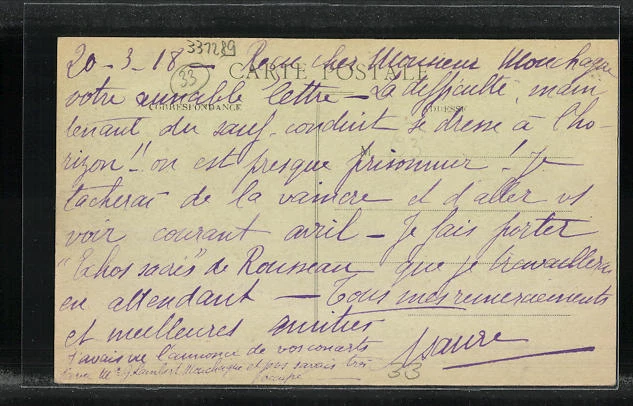 331289
20-3-18 - Reçu cher Monsieur Mouchague
33
CARTE POSTALE
votre aimable lettre - La difficulté, main
CORRESPONDANCE
ADRESSE
tenant du sauf-conduit se dresse à l'ho-
rizon!! on est presque prisonnier! Je
tacherai de la vaincre et d'aller vs
voir courant avril - Je fais porter
"Echos sacrés" de Rousseau que je travaillerai
en attendant - Tous mes remerciements
et meilleures amitiés
J'avais vu l'annonce de vos concerts
Isaure
33
Lambert Mouchague et savais très
occupé